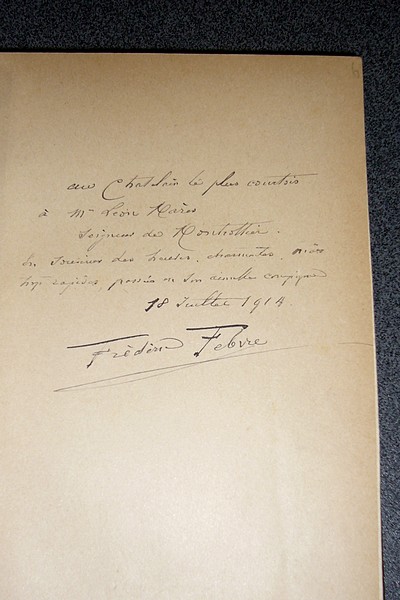 au Chatelain le plus courtois
à Mr Léon Marès
Seigneur de Montrottier.
En Souvenir des heures, charmantes, mais
trop rapides, passées en Son aimable compagnie
18 Juillet 1914.
Frédéric Febvre